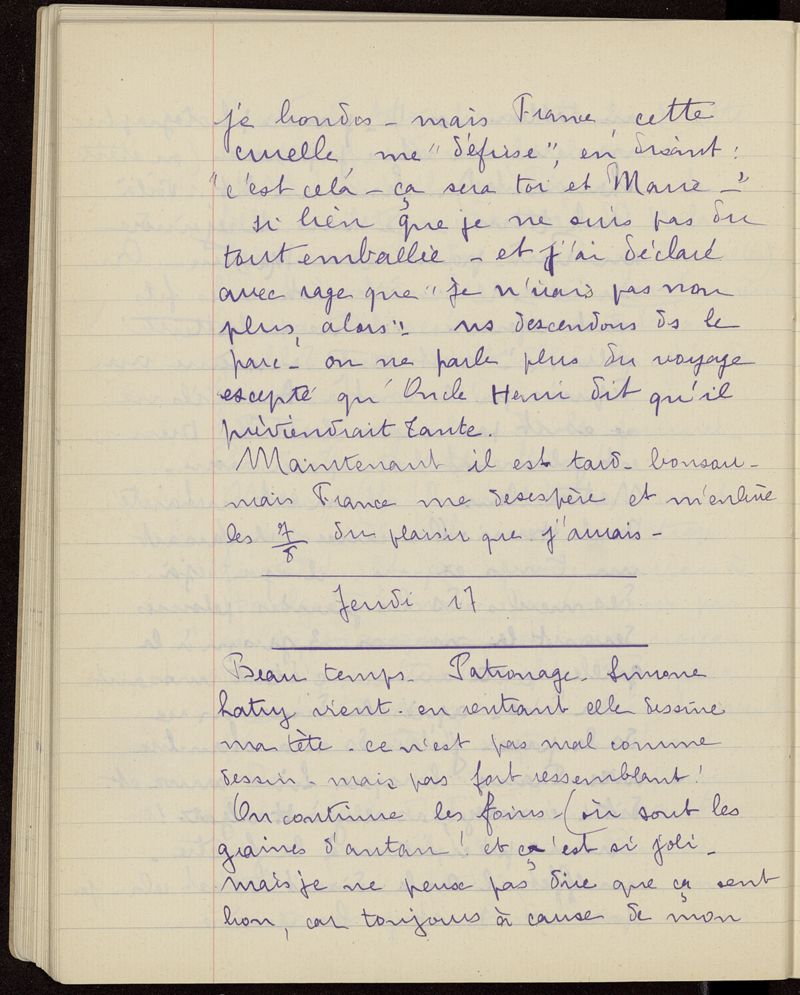 je bondos - mais France, cette
cruelle me "défrise", en disant :
"c'est celà - ça sera toi et Marie -"
si bien que je ne suis pas du
tout emballée - et j'ai déclaré
avec rage que "je n'irais pas non
plus, alors" - ns descendons ds le
parc - on ne parle plus du voyage
excepté qu'Oncle Henri dit qu'il
préviendrait Tante.
Maintenant il est tard - bonsoir -
mais France me desespère et m'enlève
les 7/8 du plaisir que j'aurais -
Jeudi 17
Beau temps - Patronage - Simone
Latry vient - en rentrant elle dessine
ma tête - ce n'est pas mal comme
dessin - mais pas fort ressemblant !
On continue les foins - (où sont les
graines d'antan ! et c'est si joli -
mais je ne peux pas dire que ça sent
bon, car toujours à cause de mon